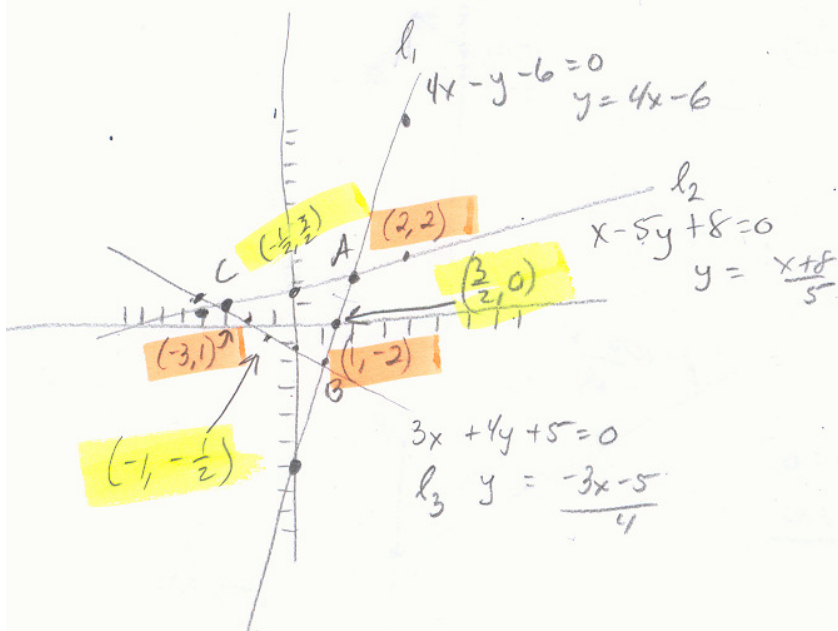 l₁
4x - y - 6 = 0
y = 4x - 6
l₂
x - 5y + 8 = 0
y = (x+8)/5
(-1/2, 3/2)
(2, 2)
C
A
(3/2, 0)
(-3, 1)
(1, -2)
B
(-1, -1/2)
3x + 4y + 5 = 0
l₃ y = (-3x-5)/4